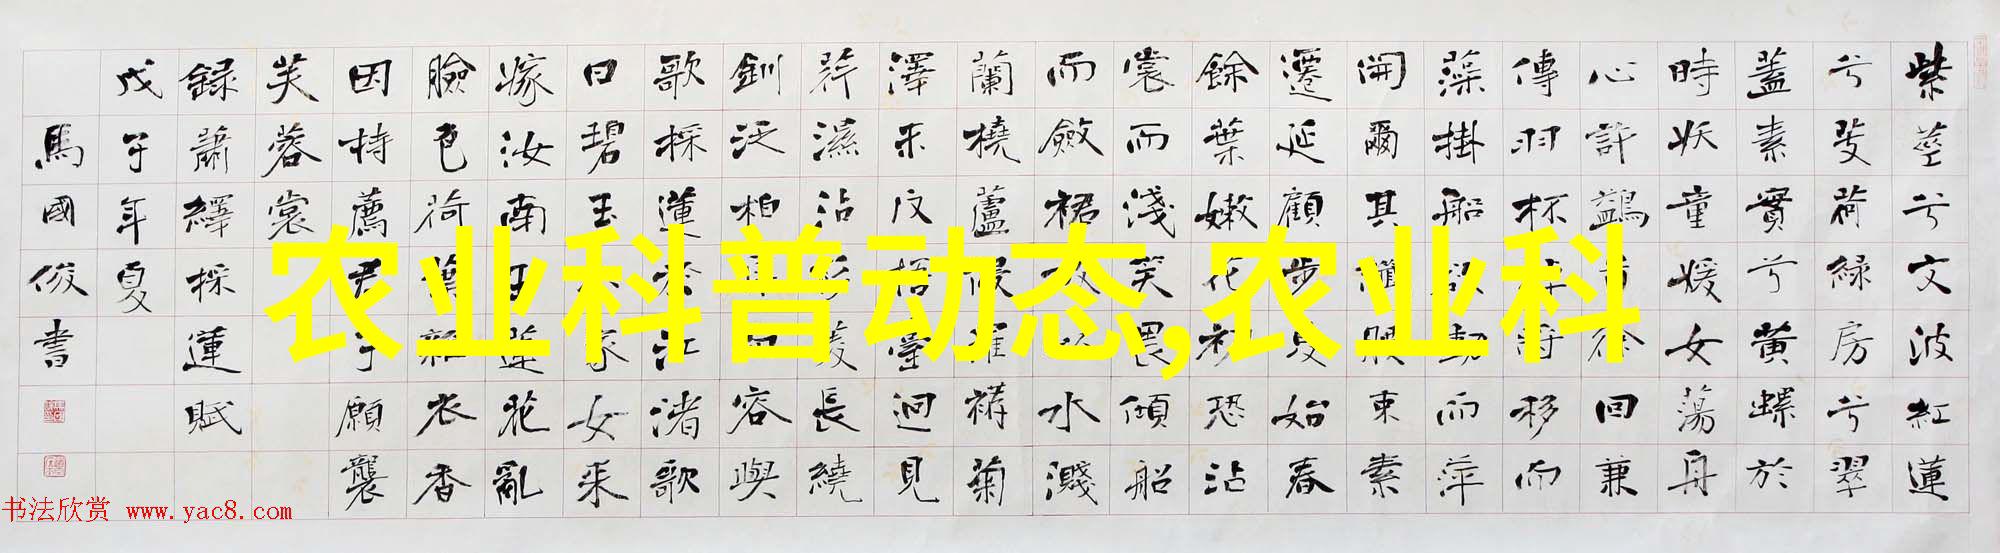 紫莖兮文波紅蓮
兮芰荷綠房兮翠
蓋素實兮黃螺於
時妖童媛女蕩舟
心許鷁首徐回兼
傳羽杯將移而
藻掛船欲動而萍
開爾其纖腰束素
遷延顧步夏始春
餘葉嫩花初恐沾
裳而淺笑畏傾船
而斂裾水濺
蘭橈蘆侵羅菊
澤未反梧臺迥見
荇濕沾衫菱長繞
釧泛柏舟容與
歌採蓮於江渚歌
曰碧玉家女來
嫁汝南王蓮花亂
臉色荷葉雜衣香
因持薦君子願襲
芙蓉裳
錄蕭繹採蓮賦
戊子年夏
馬國俊書
农业科普动态,农业科
书法欣赏 www.yac8.com